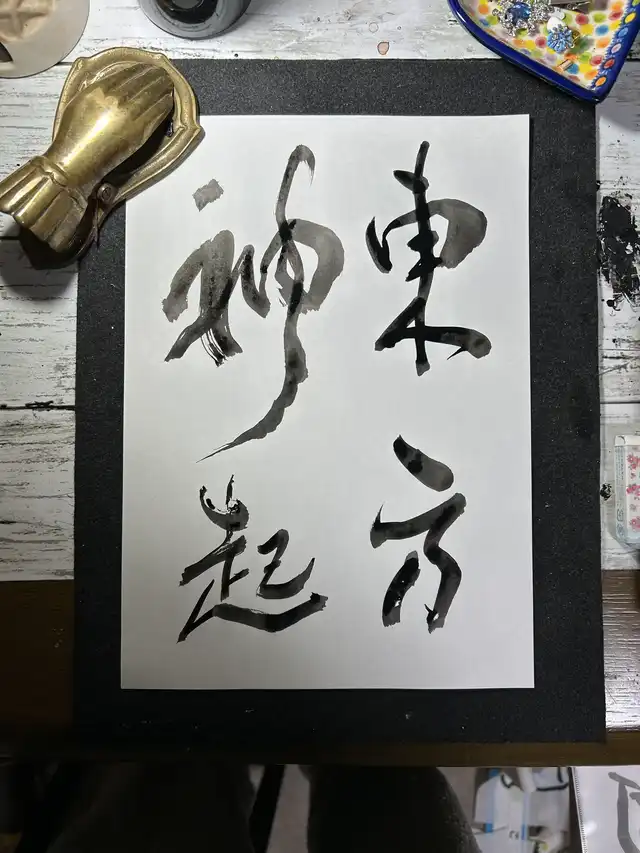 東方
神起